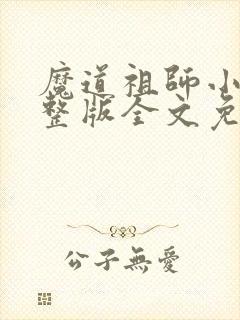 魔道祖師小
整版全文免
公子無愛